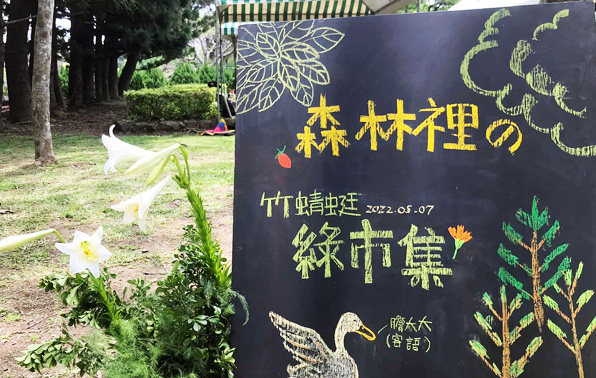 森林裡の
竹蜻蜓 2022.05.07
綠市集
膽太大
(客語)